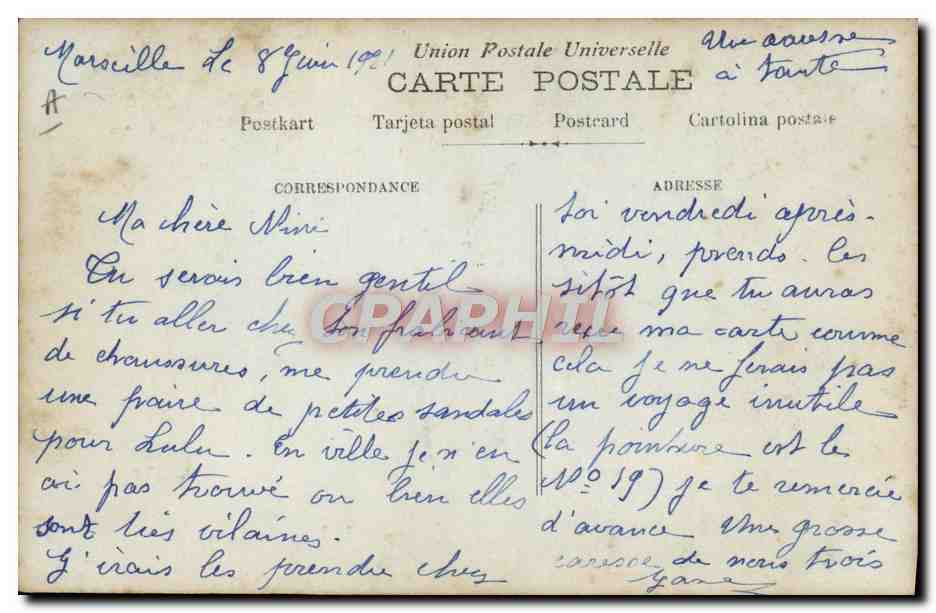 Marseille Le 8 Juin 1921
Union Postale Universelle
CARTE POSTALE
Une caresse
à tante
A
Postkart Tarjeta postal Postcard Cartolina postale
CORRESPONDANCE
ADRESSE
Ma chère Nini
Tu serais bien gentil
si tu aller chez ton fabricant
de chaussures, me prendre
une paire de petites sandales
pour Lulu. En ville je n'en
ai pas trouvé ou bien elles
sont très vilaines.
J'irais les prendre chez
toi vendredi après-
midi, prends-les
sitôt que tu auras
reçu ma carte comme
cela je ne ferais pas
un voyage inutile
(la pointure est le
No 19) je te remercie
d'avance Une grosse
caresse de nous trois
CPARHIL